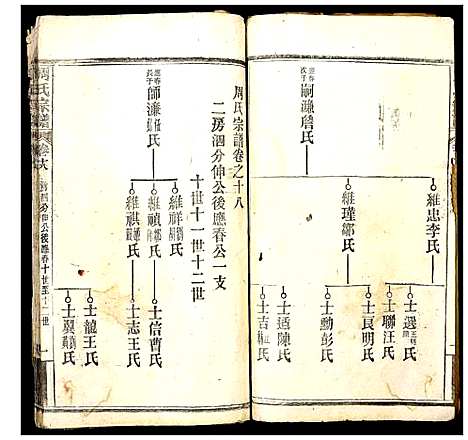 應春次子
嗣濂詹氏
維忠李氏
維瑾鄒氏
士選王
士聯汪氏
士良明氏
士勳彭氏
士适陳氏
士吉氏
周氏宗譜卷之十八
二房泗分伸公後應春公一支
十世十一世十二世
應春長子
師濂氏
維祥劉胡氏
維禎鄒氏
維祺氏
士信曹氏
士志王氏
士龍王氏
士翼氏
周氏宗譜
卷之十八
泗分伸公後應春十世至十二世
一